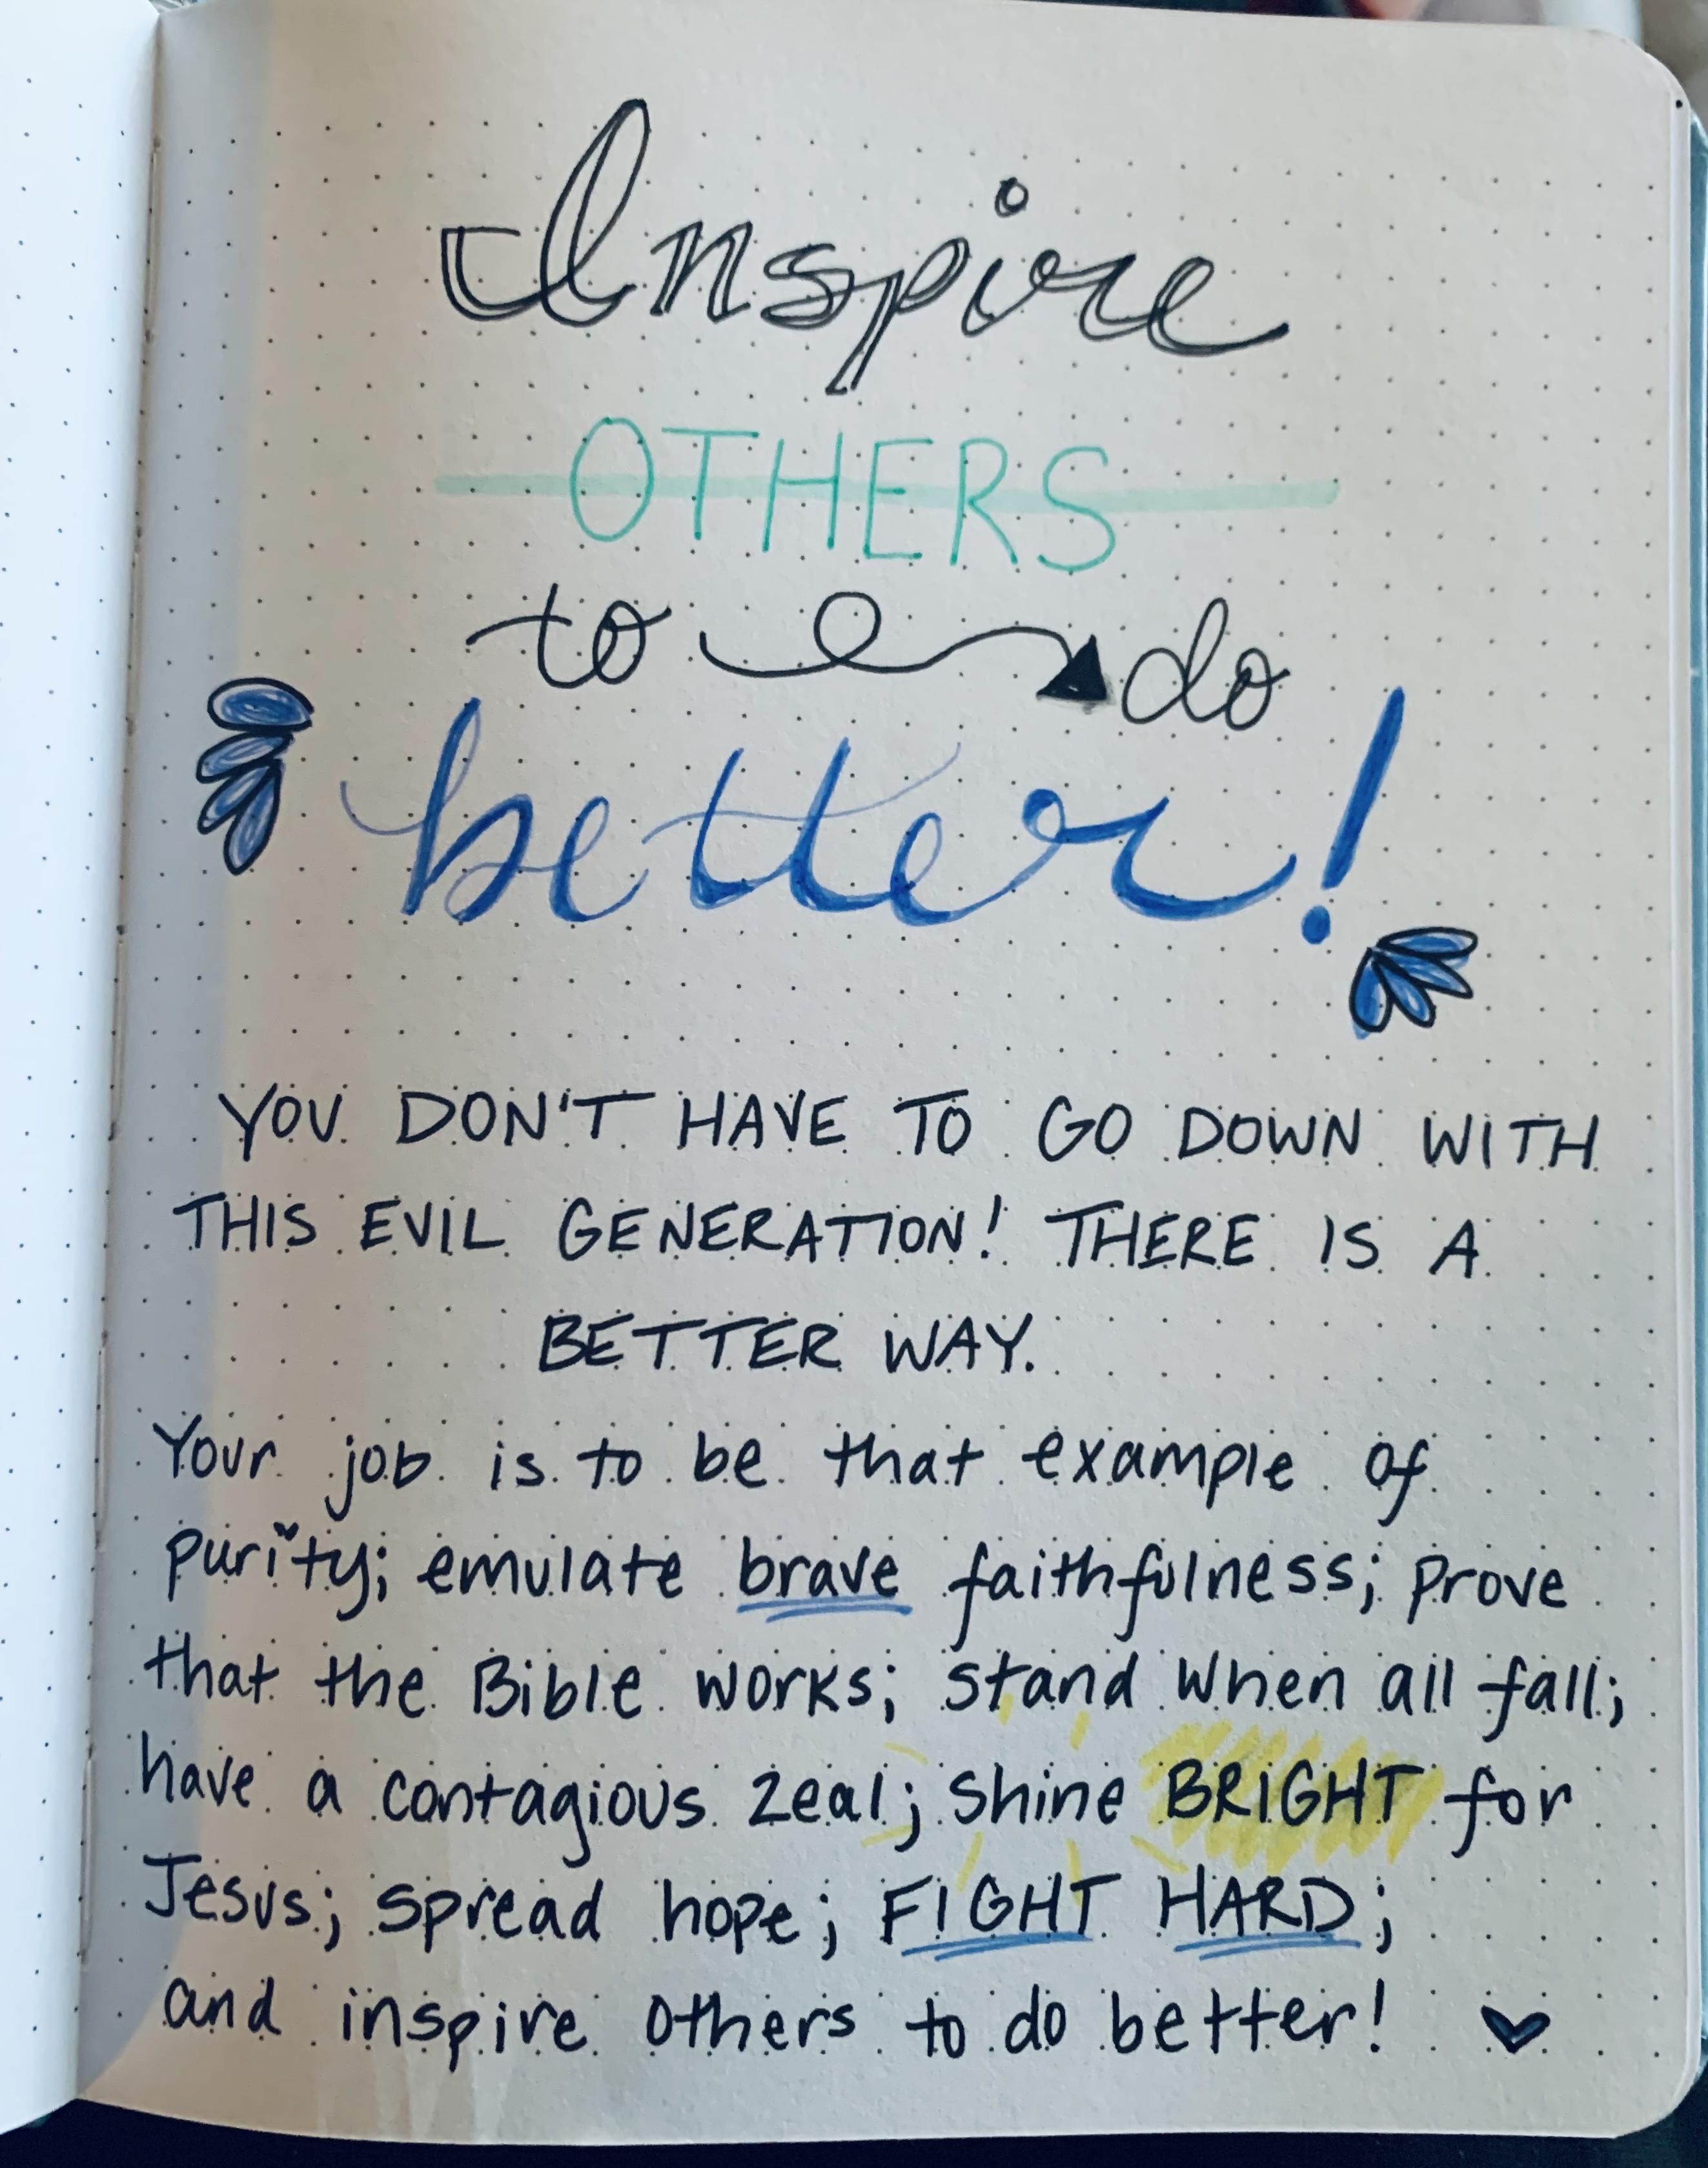 Inspire
OTHERS
to do
better!
YOU DON'T HAVE TO GO DOWN WITH
THIS EVIL GENERATION! THERE IS A
BETTER WAY.
Your job is to be that example of
purity; emulate brave faithfulness; prove
that the Bible works; stand when all fall;
have a contagious zeal; shine BRIGHT for
Jesus; spread hope; FIGHT HARD;
and inspire others to do better!